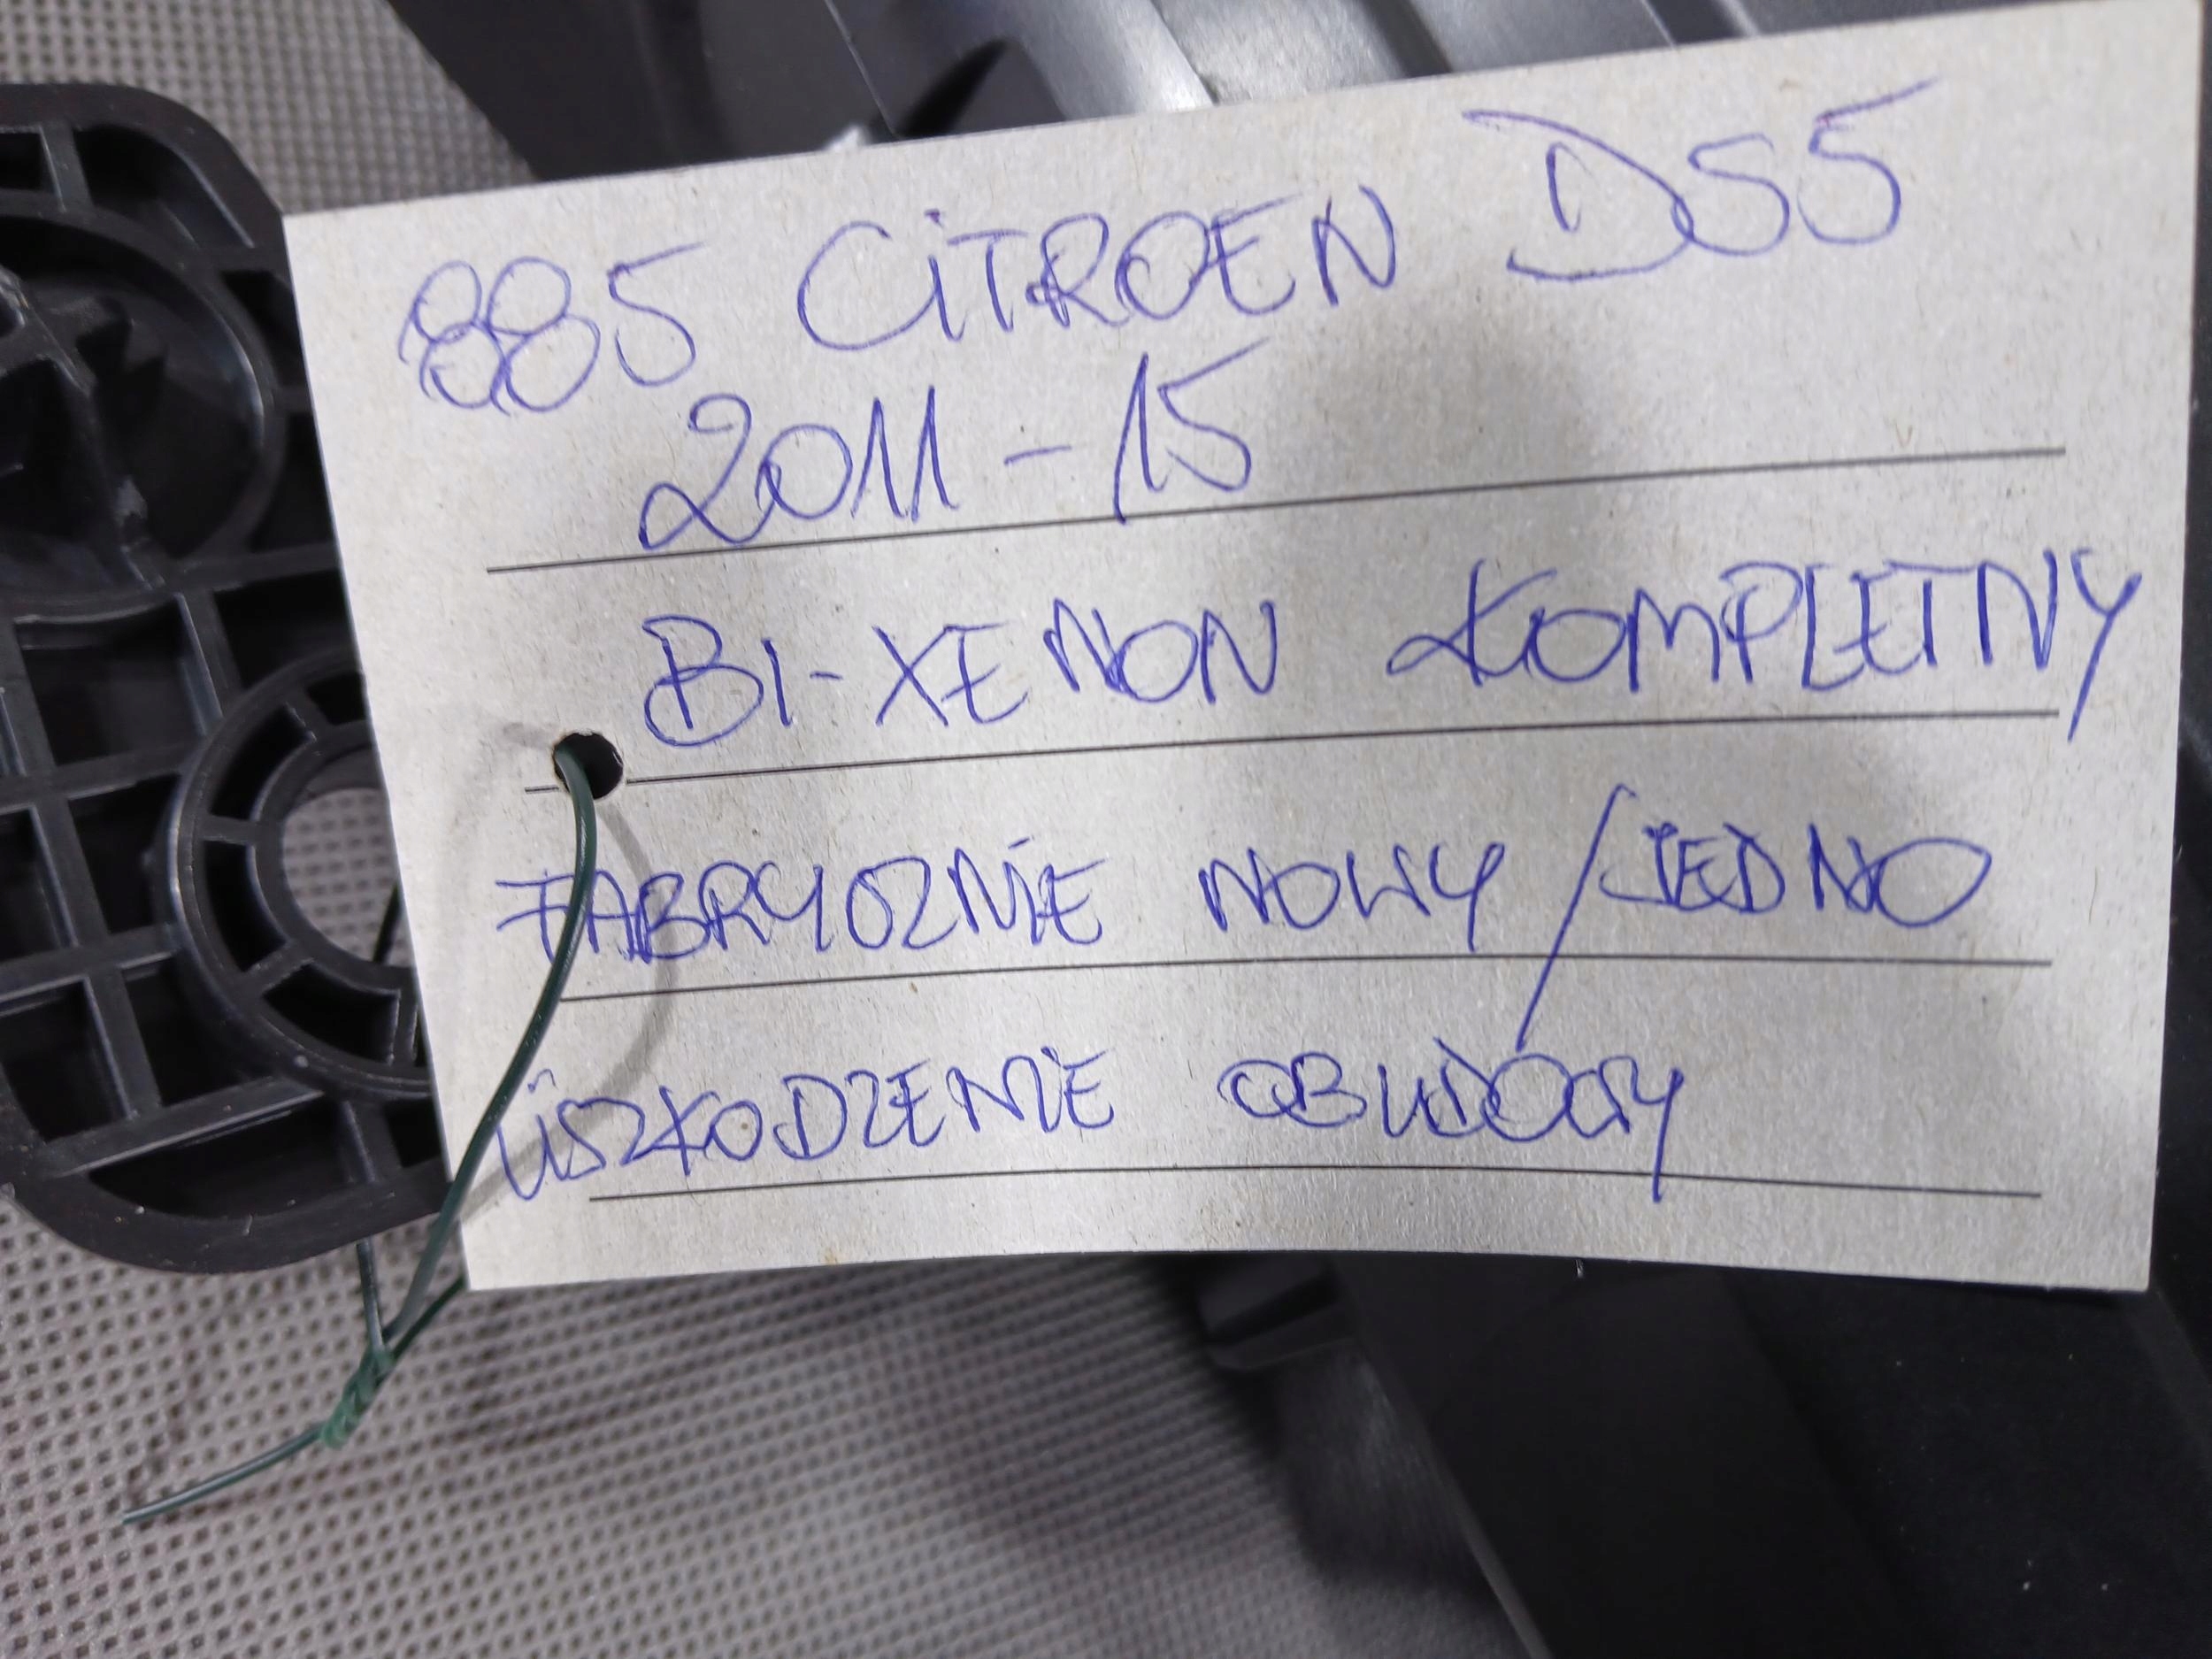 885 CiTROEN DS5
2011-15
BI-XENON KOMPLETNY
FABRYCZNIE NOWY / JEDNO
USZKODZENIE OBUDOWY